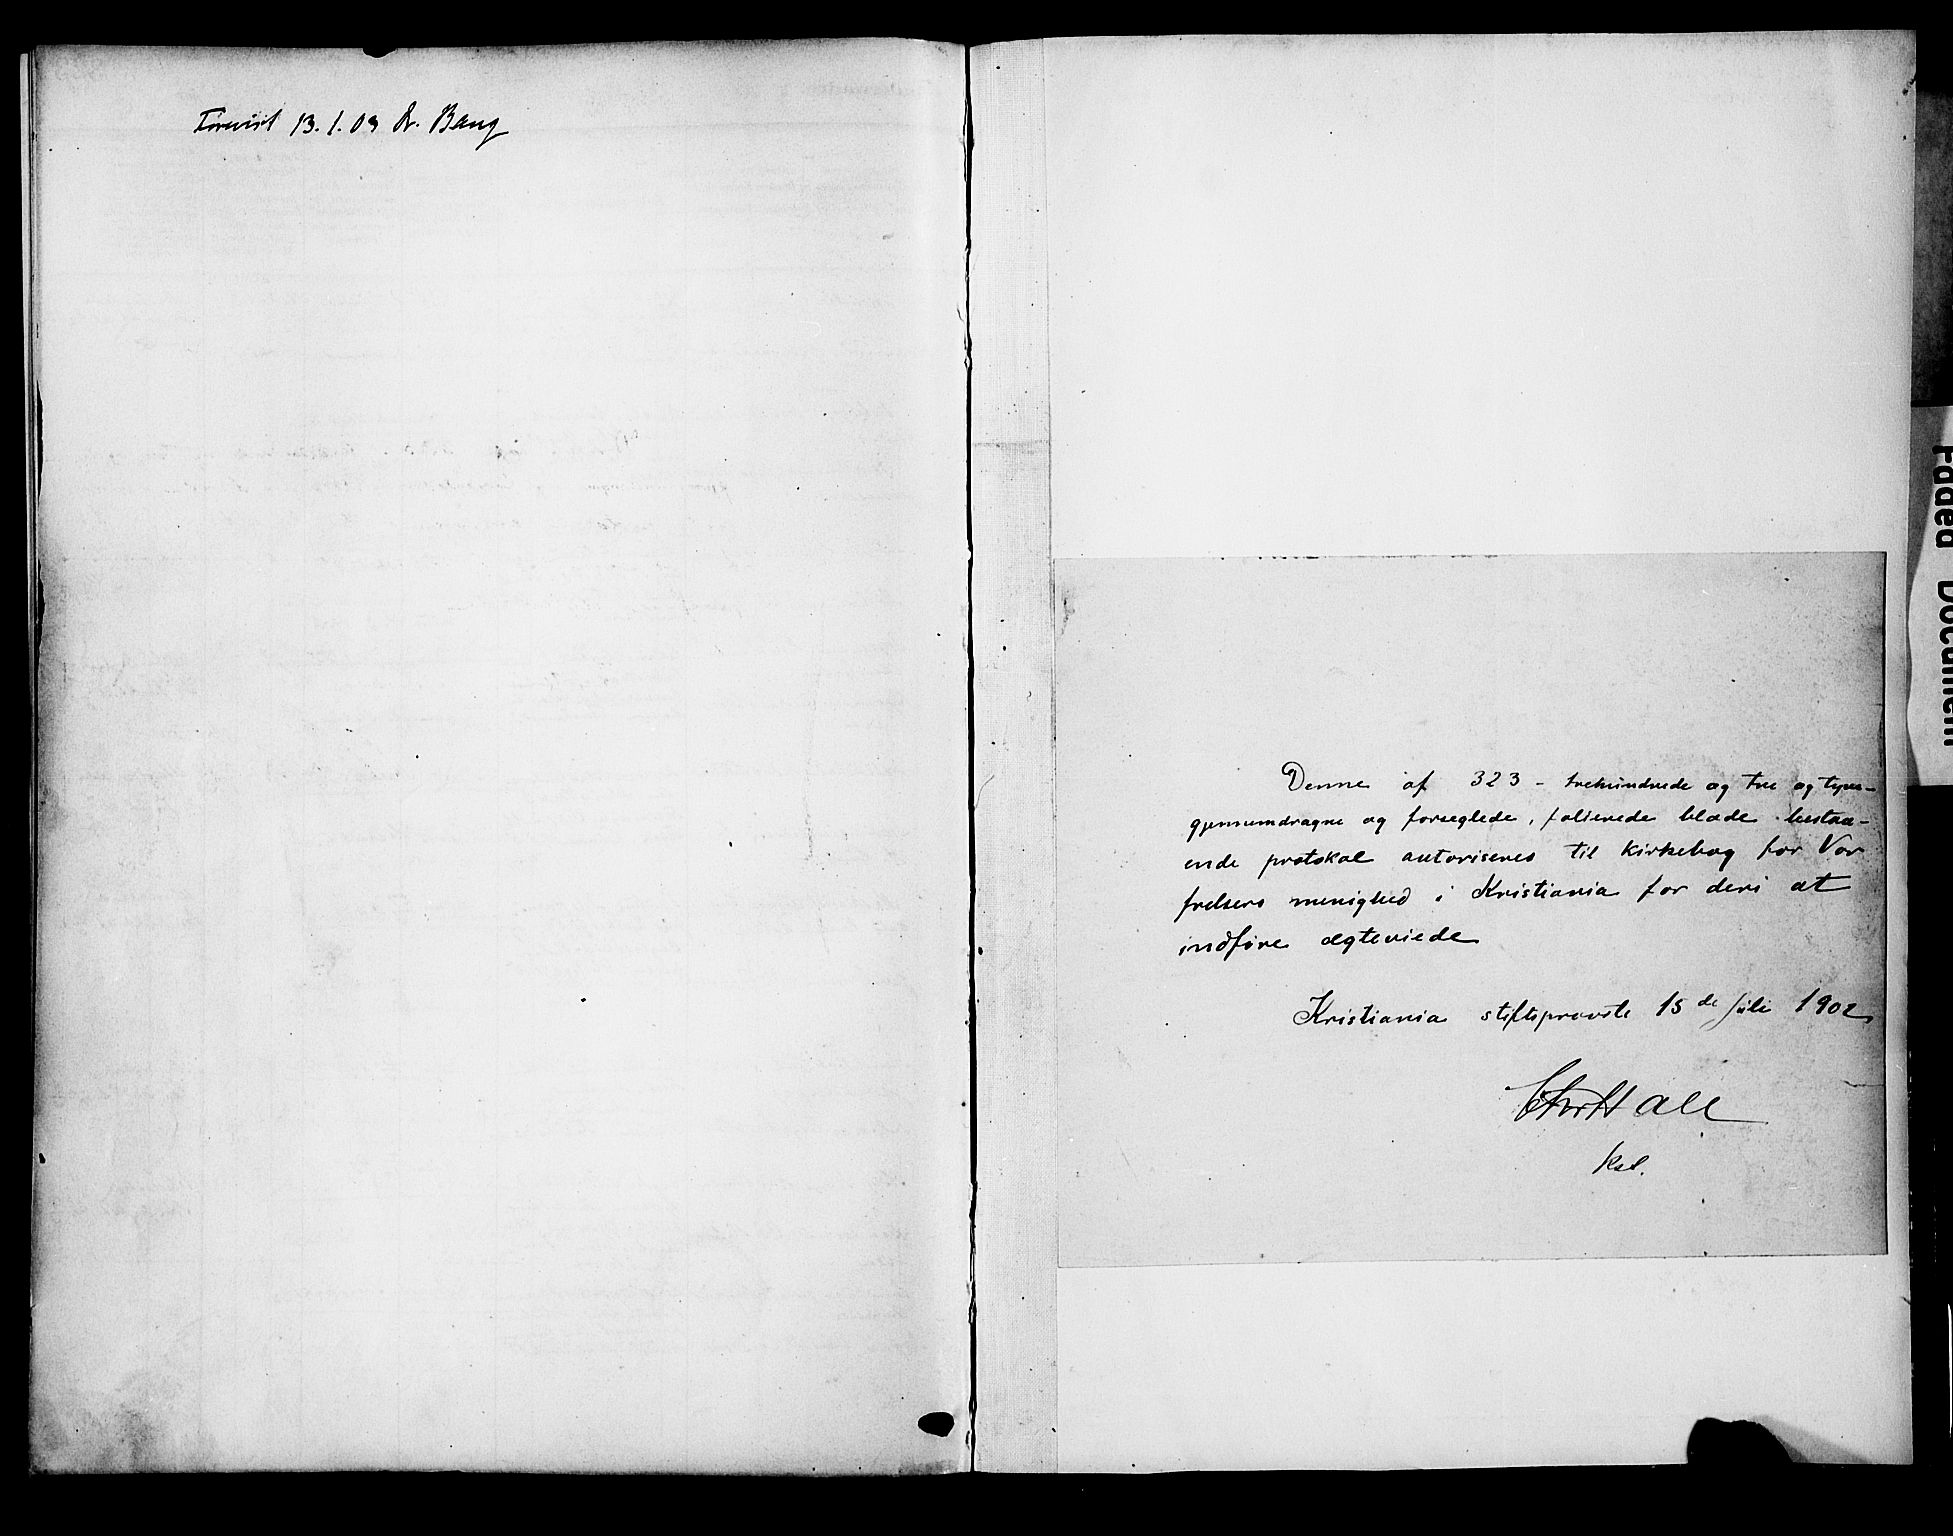 Forevist 13.1.03 A. Bang
Denne af 323 - trehundrede og tre og tyve -
gjennemdragne og forseglede, folierede blade bestaa-
ende protokol autoriseres til kirkebog for Vor
frelsers menighed i Kristiania for deri at
indføre ægteviede
Kristiania stiftsprovsti 15de juli 1902
Chr Hall
kst.
Faded Document